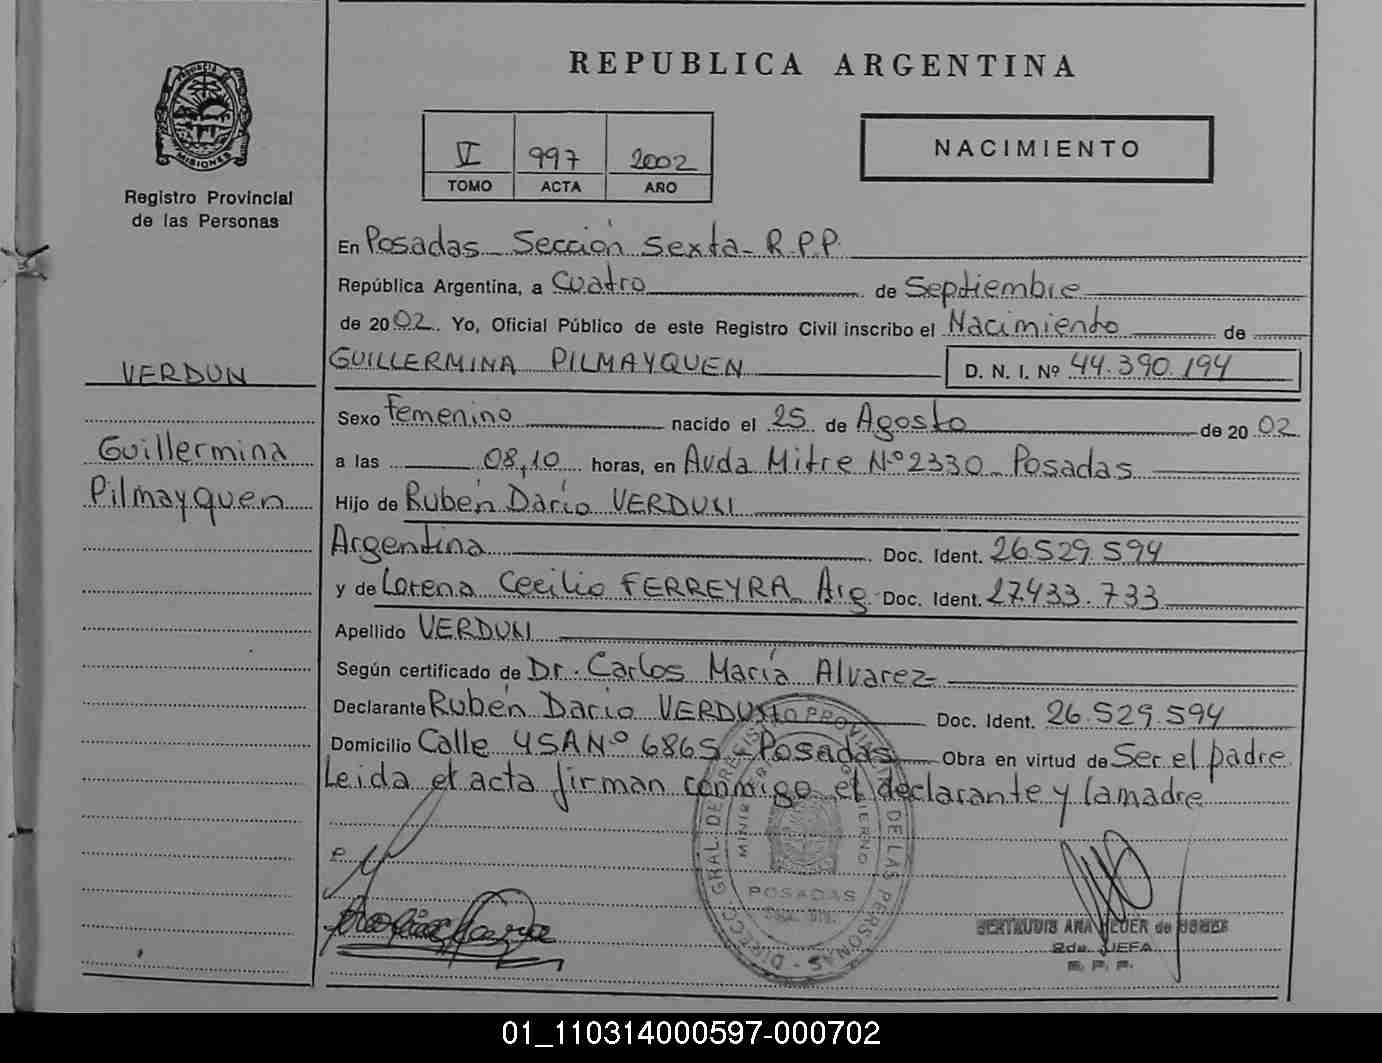 REPUBLICA ARGENTINA
PROVINCIA DE
MISIONES
Registro Provincial
de las Personas
VI 997 2002
TOMO ACTA AÑO
NACIMIENTO
En Posadas Sección Sexta - R.P.P.
República Argentina, a Cuatro de Septiembre
de 2002. Yo, Oficial Público de este Registro Civil inscribo el Nacimiento de
GUILLERMINA PILMAYQUEN D. N. I. Nº 44.390.194
VERDUN
Guillermina
Pilmayquen
Sexo Femenino nacido el 25 de Agosto de 2002
a las 08,10 horas, en Avda Mitre Nº 2330 Posadas
Hijo de Rubén Darío VERDUN
Argentina Doc. Ident. 26.529.594
y de Lorena Cecilia FERREYRA Arg Doc. Ident. 27433.733
Apellido VERDUN
Según certificado de Dr. Carlos María Alvarez
Declarante Rubén Dario VERDUN Doc. Ident. 26.529.594
Domicilio Calle 45A Nº 6865 - Posadas Obra en virtud de Ser el padre
Leida el acta firman conmigo el declarante y la madre
DIRECC. GRAL. DE REGISTRO PROVINCIAL DE LAS PERSONAS
POSADAS
GERTRUDIS ANA de
2da. JEFA
R. P. P.
01_110314000597-000702